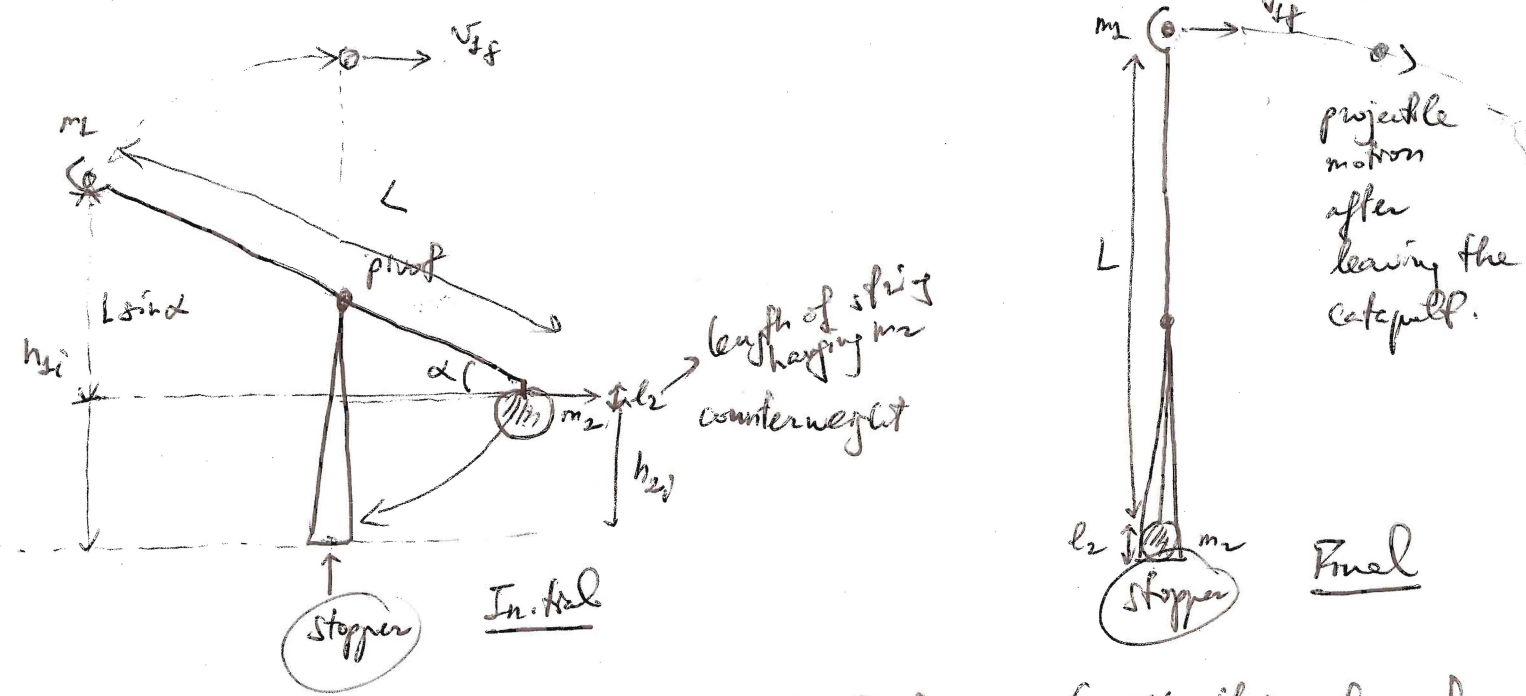 v1f
m1
L
pivot
L sinα
h1i
α
m2
l2
length of string
hanging m2
counterweight
h2i
stopper
Initial
m1
v1f
L
projectile
motion
after
leaving the
catapult.
l2
m2
stopper
Final